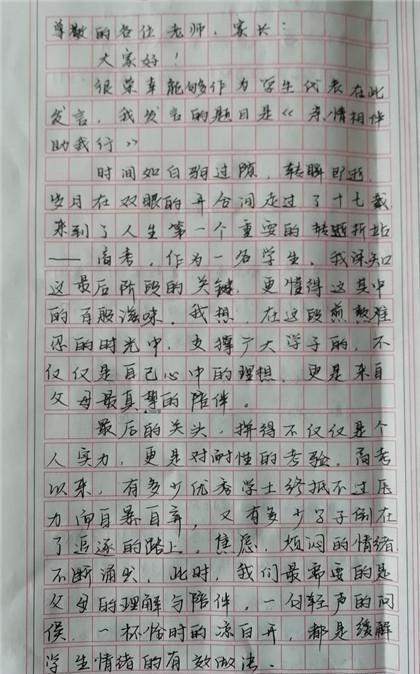 尊敬的各位老师、家长:
大家好!
很荣幸能够作为学生代表在此
发言,我发言的题目是《亲情相伴
助我行》
时间如白驹过隙,转瞬即逝,
岁月在双眼的开合间走过了十七载,
来到了人生第一个重要的转折站
——高考,作为一名学生,我深知
这最后阶段的关键,更懂得这其中
的百般滋味。我想,在这段煎熬难
忍的时光中,支撑广大学子的,不
仅仅是自己心中的理想,更是来自
父母最真挚的陪伴。
最后的关头,拼得不仅仅是个
人实力,更是对耐性的考验。高考
以来,有多少优秀学士终抵不过压
力而自暴自弃,又有多少学子倒在
了追逐的路上。焦虑、烦闷的情绪
不断涌出,此时,我们最需要的是
父母的理解与陪伴,一句轻声的问
候,一杯恰时的凉白开,都是缓解
学生情绪的有效做法。